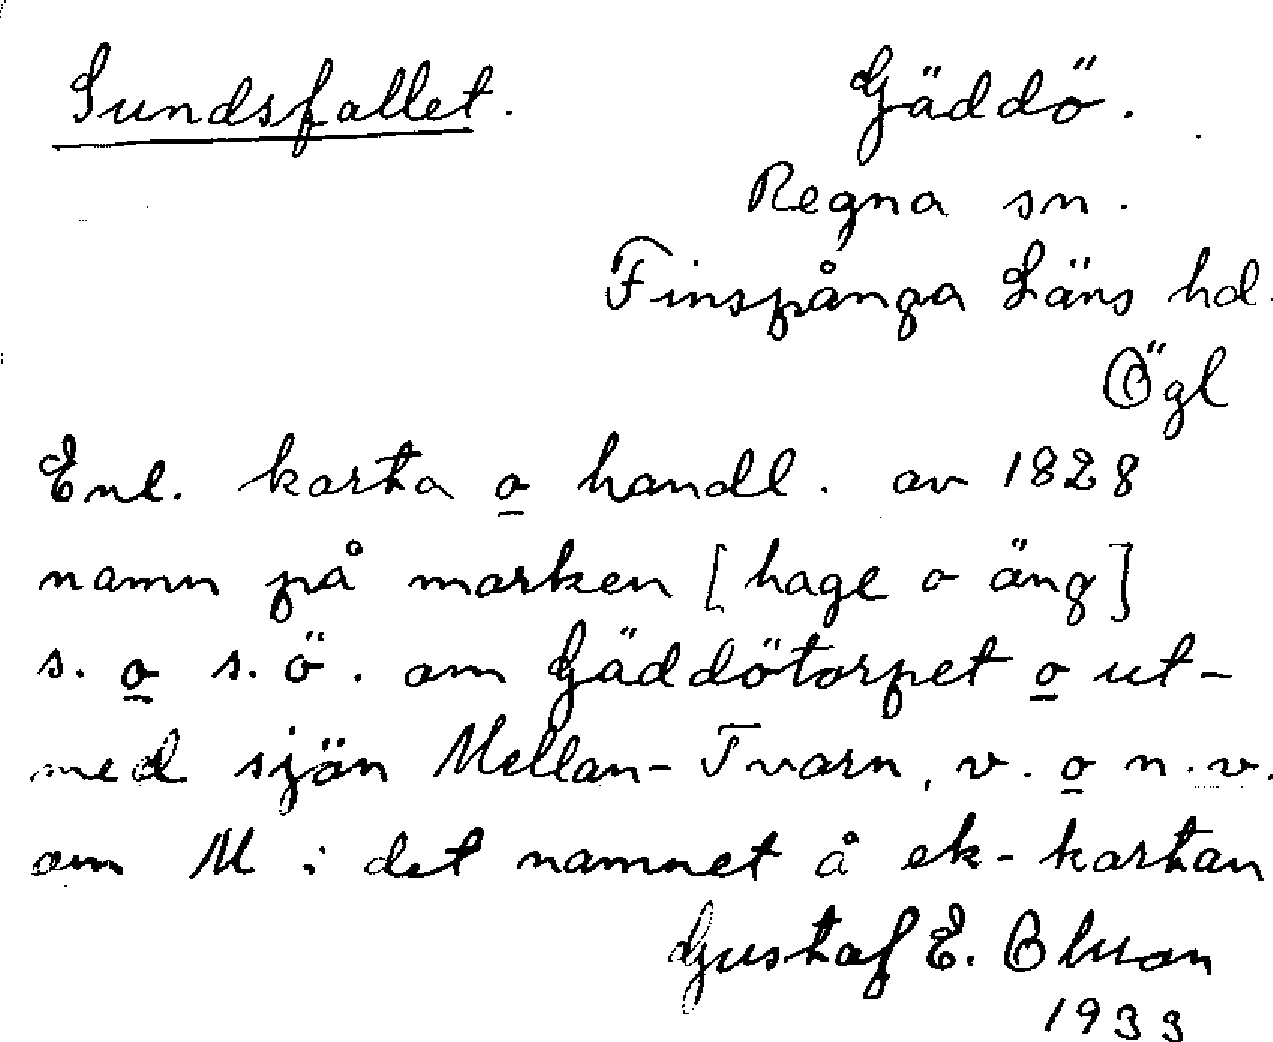 Sundsfallet. Gäddö.
Regna sn.
Finspånga Läns hd.
Ögl
Enl. karta o handl. av 1828
namn på marken [hage o äng]
s. o s.ö. om Gäddötorpet o ut-
med sjön Mellan-Tvarn, v. o n.v.
om M i det namnet å ek-kartan
Gustaf E.
1933